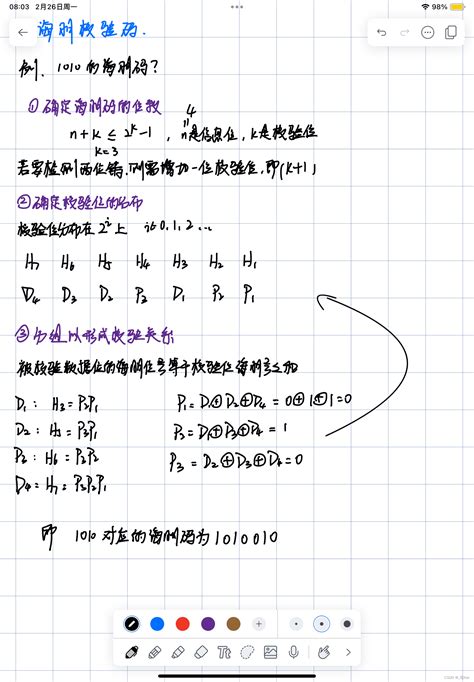 08:03 2月26日周一
98%
海明校验码.
例、1010的海明码?
①确定海明码的位数
n+k≤2^k-1, n是信息位, k是校验位
4
=
k=3
若要检测两位错,则需增加一位校验位,即(k+1)
②确定校验位的分布
校验位分布在2^i上 i∈0,1,2…
H7 H6 H5 H4 H3 H2 H1
D4 D3 D2 P2 D1 P2 P1
③分组以形成校验关系
被校验数据位的海明位号等于校验位海明号之和
D1: H3=P2P1 P1=D1⊕D2⊕D4=0⊕1⊕1=0
D2: H5=P3P1 P2=D1⊕D3⊕D4=1
H6=P3P2 P3=D2⊕D3⊕D4=0
D4=H7=P3P2P1
即 1010对应的海明码为1010010